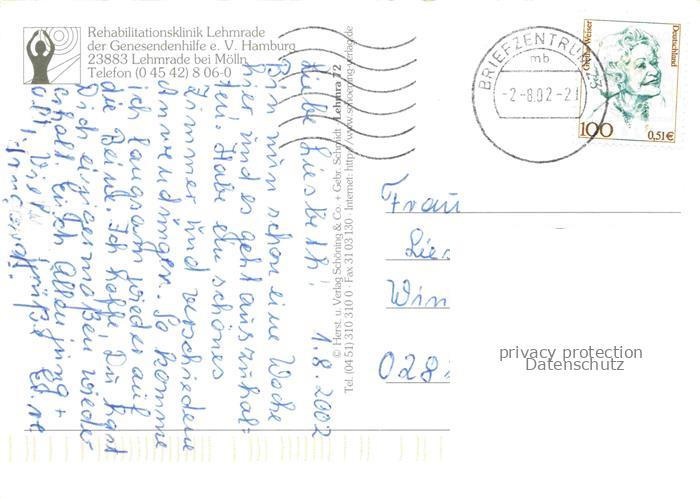 Rehabilitationsklinik Lehmrade
der Genesendenhilfe e. V. Hamburg
23883 Lehmrade bei Mölln
Telefon (0 45 42) 8 06-0
1.8.2002
Liebe Liesbeth!
Bin nun schon eine Woche
hier und es geht auszuhal=
ten. Habe ein schönes
Zimmer und verschiedene
Anwendungen. So komme
ich langsam wieder auf
die Beine. Ich hoffe Du hast
Dich einigermaßen wieder
erholt. Euch allen jung +
alt, viele Grüße
© Herst. u. Verlag Schöning & Co. + Gebr. Schmidt · Lehmra 72
Tel. (04 51) 310 310 0 · Fax 31 03 130 Internet: http://www.schoening-verlag.de
BRIEFZENTRUM 23
mb
-2.-8.02-2
Grethe Weiser
Deutschland
100
0,51€
Frau
Lies
Win
028
privacy protection
Datenschutz